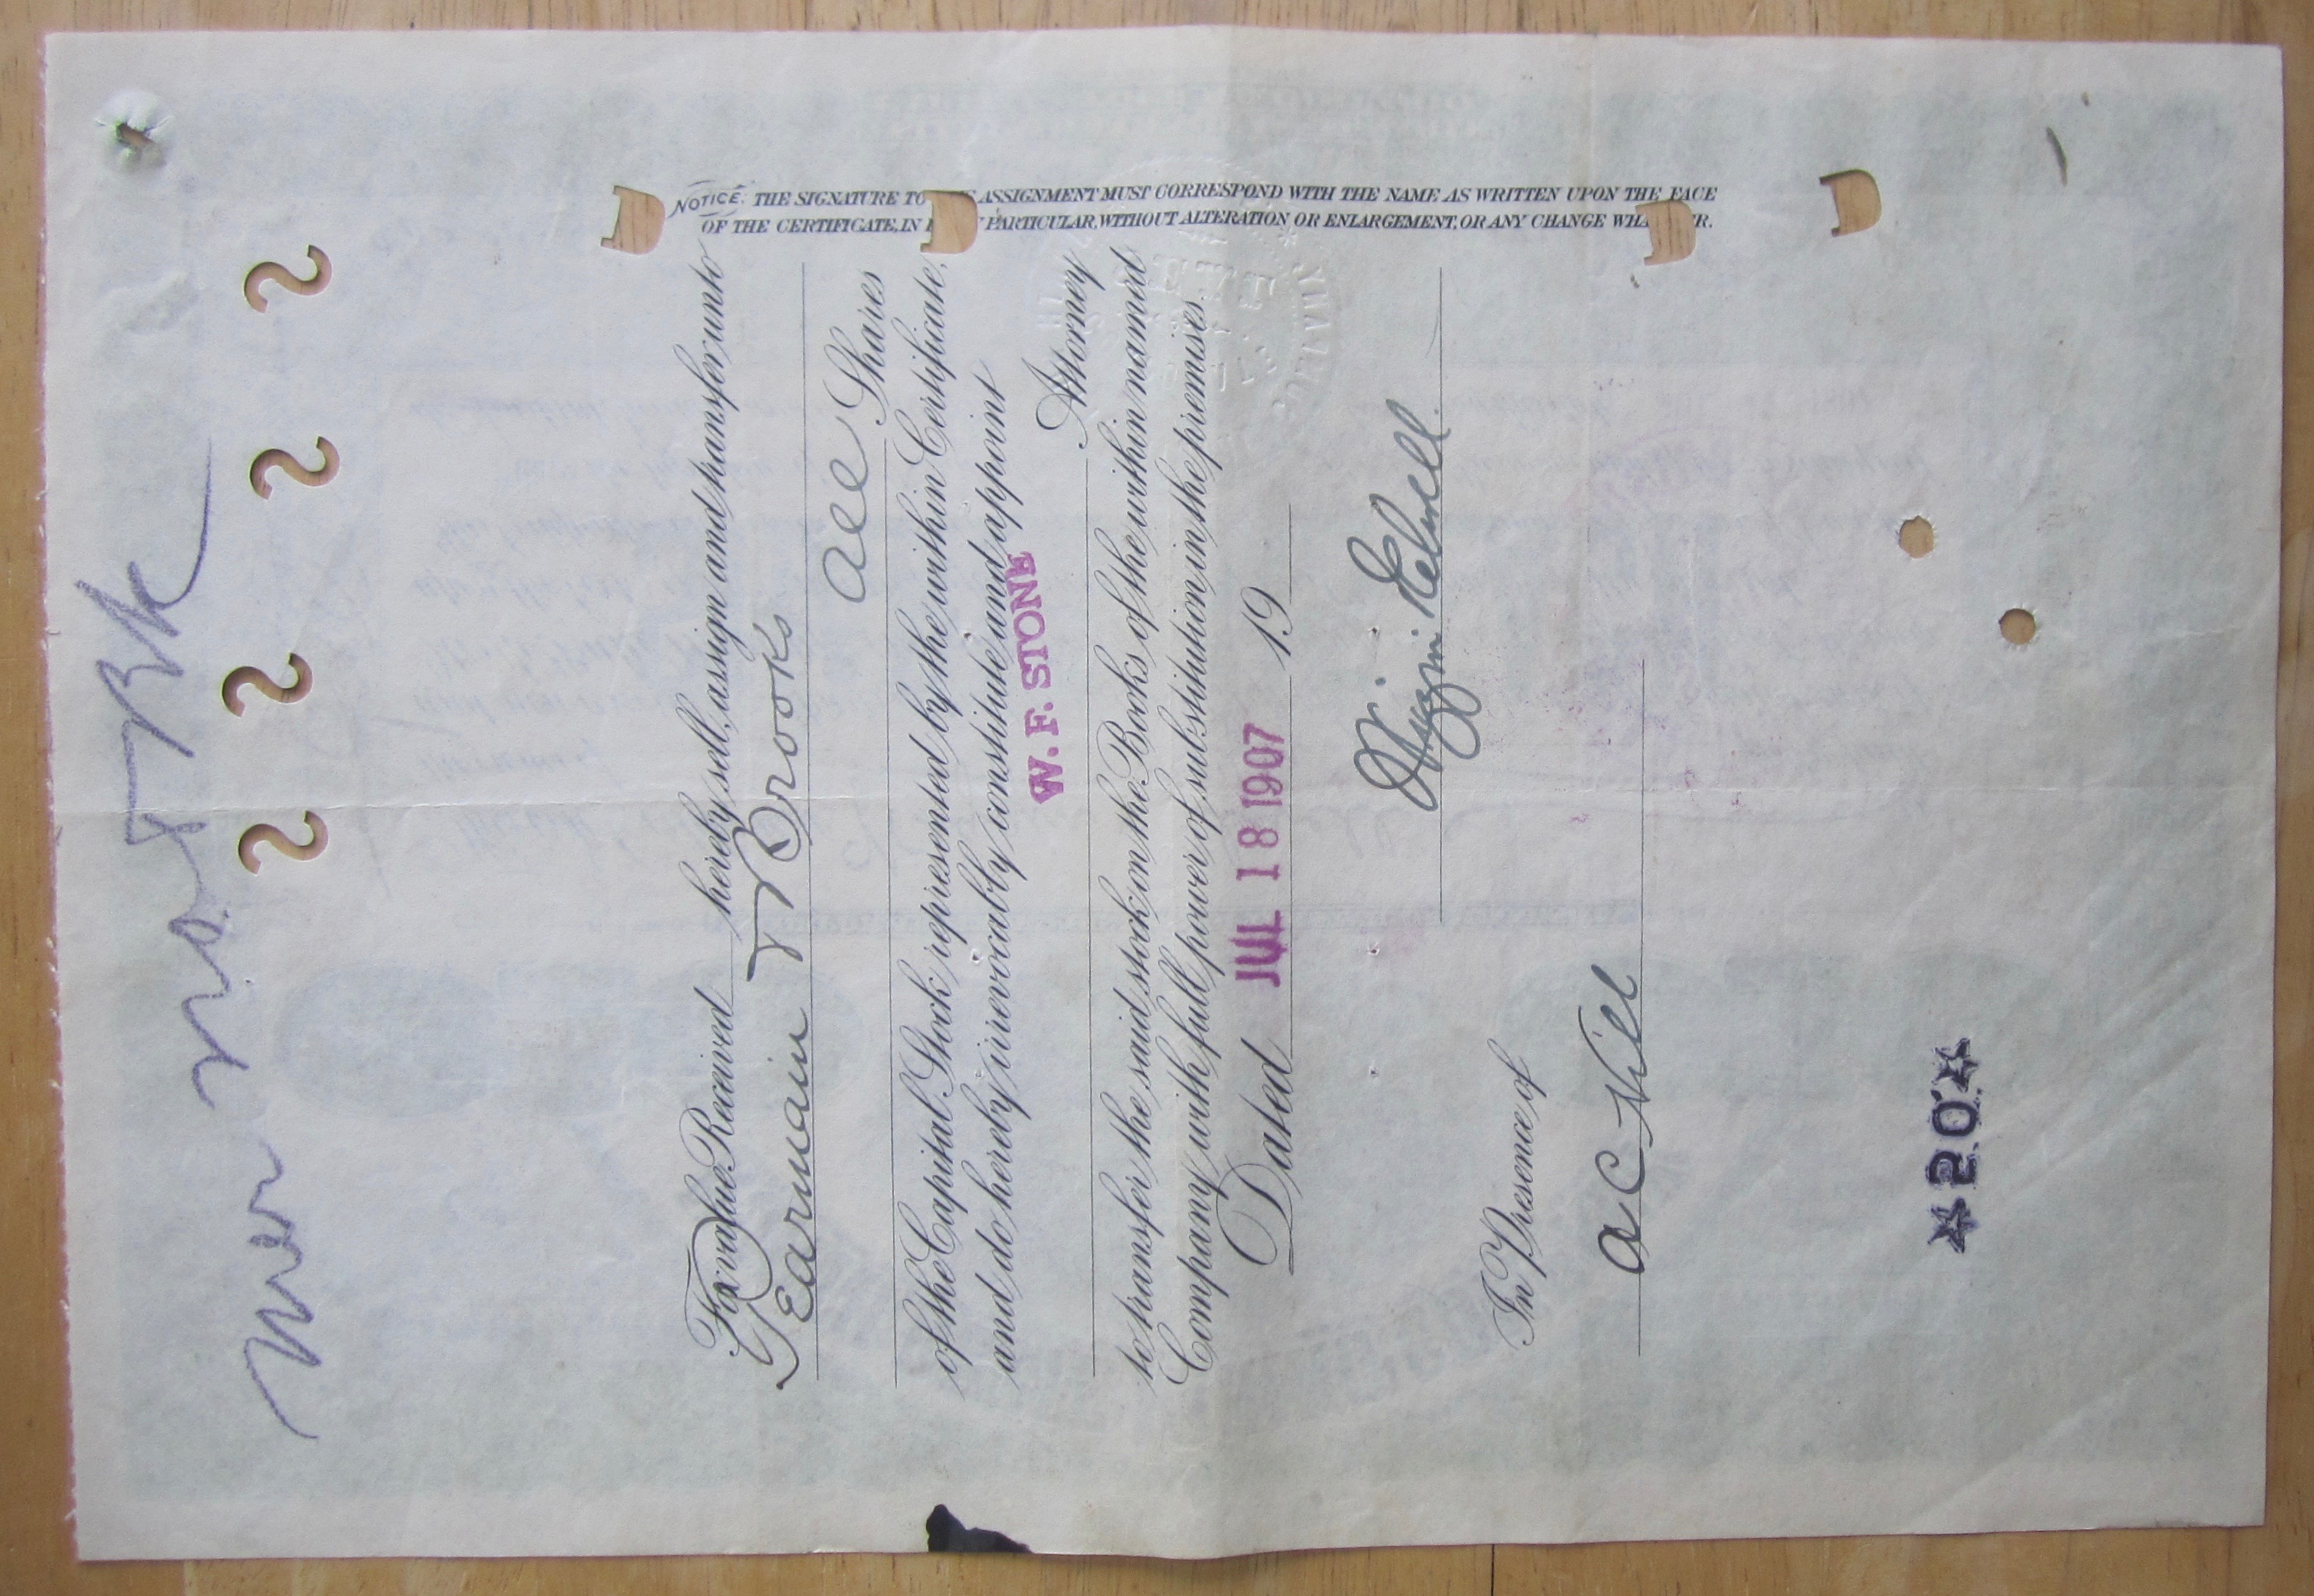 NOTICE: THE SIGNATURE TO ASSIGNMENT MUST CORRESPOND WITH THE NAME AS WRITTEN UPON THE FACE
OF THE CERTIFICATE, IN PARTICULAR, WITHOUT ALTERATION OR ENLARGEMENT, OR ANY CHANGE
For value Received hereby sell, assign and transfer unto
Brooks
all Shares
of the Capital Stock represented by the within Certificate,
and do hereby irrevocably constitute and appoint
W. F. STONE Attorney
to transfer the said stock on the Books of the within named
Company with full power of substitution in the premises.
Dated JUL 18 1907 19
In Presence of
A C Hill
*20*